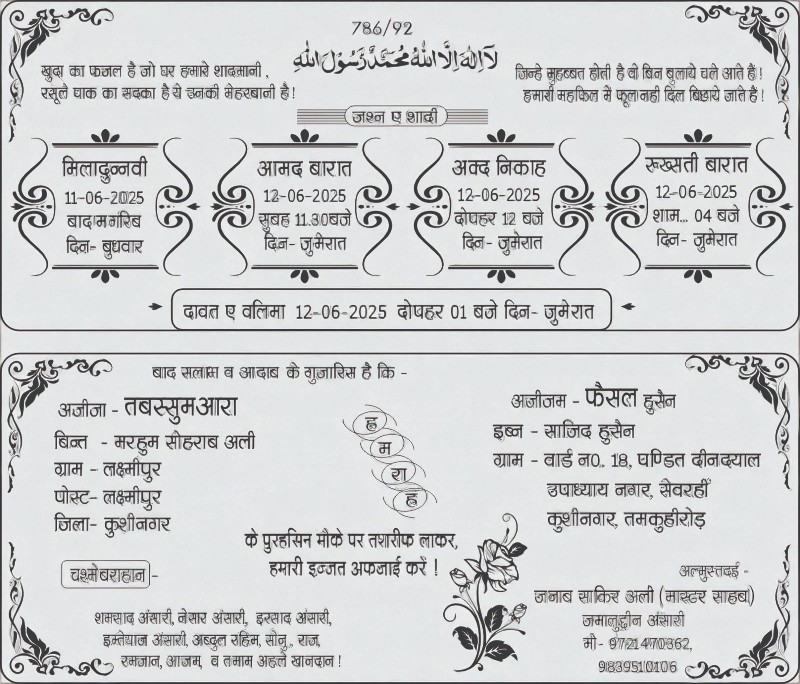 786/92
لآ اِلٰهَ اِلَّا اللّٰهُ مُحَمَّدٌ رَّسُوْلُ اللّٰهِ
खुदा का फजल है जो घर हमारे शादमानी,
रसूले पाक का सदका है ये उनकी मेहरबानी है!
जिन्हे मुहब्बत होती है वो बिन बुलाये चले आते हैं!
हमारी महफिल में फूल नही दिल बिछाये जाते है!
जश्न ए शादी
मिलादुन्नवी
11-06-2025
बादामगरिब
दिन- बुधवार
आमद बारात
12-06-2025
सुबह 11.30बजे
दिन- जुमेरात
अक्द निकाह
12-06-2025
दोपहर 12 बजे
दिन- जुमेरात
रूख्सती बारात
12-06-2025
शाम... 04 बजे
दिन- जुमेरात
दावत ए वलिमा 12-06-2025 दोपहर 01 बजे दिन- जुमेरात
बाद सलाम व आदाब के गुजारिस है कि -
अजीजा - तबस्सुमआरा
बिन्त - मरहुम सोहराब अली
ग्राम - लक्ष्मीपुर
पोस्ट- लक्ष्मीपुर
जिला- कुशीनगर
ह
म
रा
ह
अजीजम - फैसल हुसैन
इब्न - साजिद हुसैन
ग्राम - वार्ड न0. 18, पण्डित दीनदयाल
उपाध्याय नगर, सेवरहीं
कुशीनगार, तमकुहीरोड़
के पुरहसिन मौके पर तशरीफ लाकर,
हमारी इज्जत अफजाई करें !
चश्मेबराहान -
शमसाद अंसारी, नेसार अंसारी, इरसाद अंसारी,
इम्तेयाज अंसारी, अब्दुल रहिम, सोनू, राज,
रमजान, आजम, व तमाम अहले खानदान !
अल्मुस्तदई -
जनाब साकिर अली (मास्टर साहब)
जमालुद्दीन अंसारी
मो - 9721470362,
9839510106